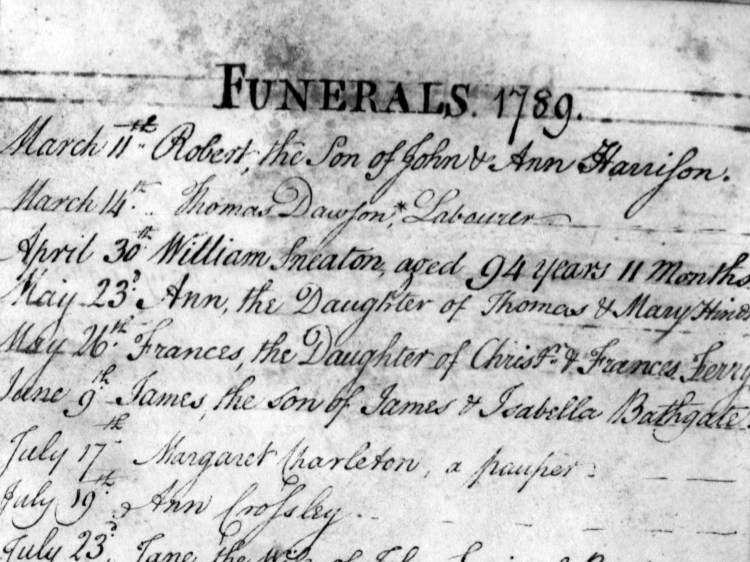 FUNERALS. 1789.
March 11th Robert, the Son of John & Ann Harrison.
March 14th Thomas Dawson,* Labourer
April 30th William Sneaton, aged 94 years 11 Months
May 23d Ann, the Daughter of Thomas & Mary
May 26th Frances, the Daughter of Christr & Frances Ferry
June 9th James, the son of James & Isabella Bathgate.
July 17th Margaret Charleton, a pauper.
July 19th Ann Crossley.
July 23d, Jane, the Wife of John